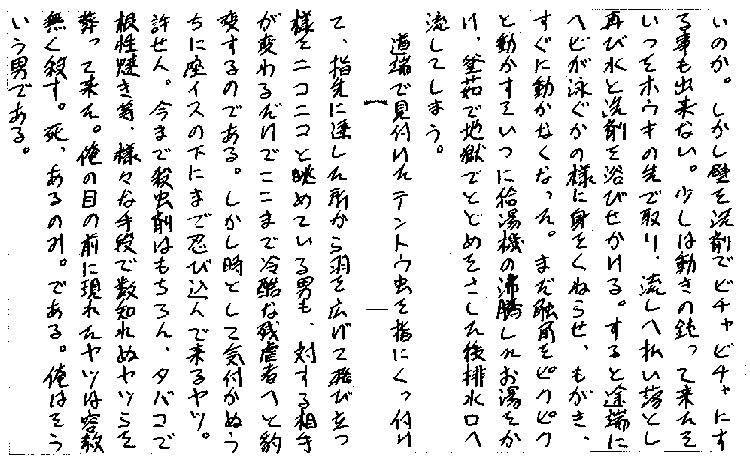 いのか。しかし壁を洗剤でビチャビチャにす
る事も出来ない。少しは動きの鈍って来たそ
いつをホウキの先で取り、流しへ払い落とし
再び水と洗剤を浴びせかける。すると途端に
ヘビが泳ぐかの様に身をくねらせ、もがき、
すぐに動かなくなった。まだ触角をピクピク
と動かすそいつに給湯機の沸騰したお湯をか
け、釜茹で地獄でとどめをさした後排水口へ
流してしまう。
道端で見付けたテントウ虫を指にくっ付け
て、指先に達した所から羽を広げて飛び立つ
様をニコニコと眺めている男も、対する相手
が変わるだけでここまで冷酷な残虐者へと豹
変するのである。しかし時として気付かぬう
ちに座イスの下にまで忍び込んで来るヤツ。
許せん。今まで殺虫剤はもちろん、タバコで
根性焼き等、様々な手段で数知れぬヤツらを
葬って来た。俺の目の前に現れたヤツは容赦
無く殺す。死、あるのみ。である。俺はそう
いう男である。